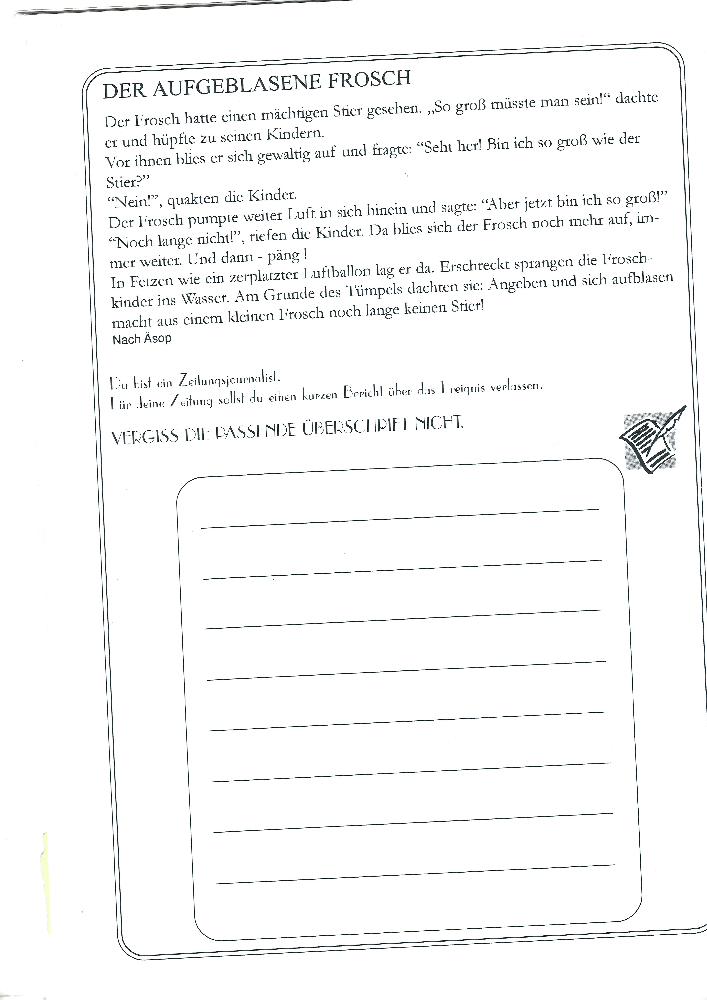 DER AUFGEBLASENE FROSCH
Der Frosch hatte einen mächtigen Stier gesehen. „So groß müsste man sein!“ dachte
er und hüpfte zu seinen Kindern.
Vor ihnen blies er sich gewaltig auf und fragte: “Seht her! Bin ich so groß wie der
Stier?”
“Nein!”, quakten die Kinder.
Der Frosch pumpte weiter Luft in sich hinein und sagte: “Aber jetzt bin ich so groß!”
“Noch lange nicht!”, riefen die Kinder. Da blies sich der Frosch noch mehr auf, im-
mer weiter. Und dann - päng !
In Fetzen wie ein zerplatzter Luftballon lag er da. Erschreckt sprangen die Frosch-
kinder ins Wasser. Am Grunde des Tümpels dachten sie: Angeben und sich aufblasen
macht aus einem kleinen Frosch noch lange keinen Stier!
Nach Äsop
Du bist ein Zeitungsjournalist.
Für deine Zeitung sollst du einen kurzen Bericht über das Ereignis verfassen.
VERGISS DIE PASSENDE ÜBERSCHRIFT NICHT.